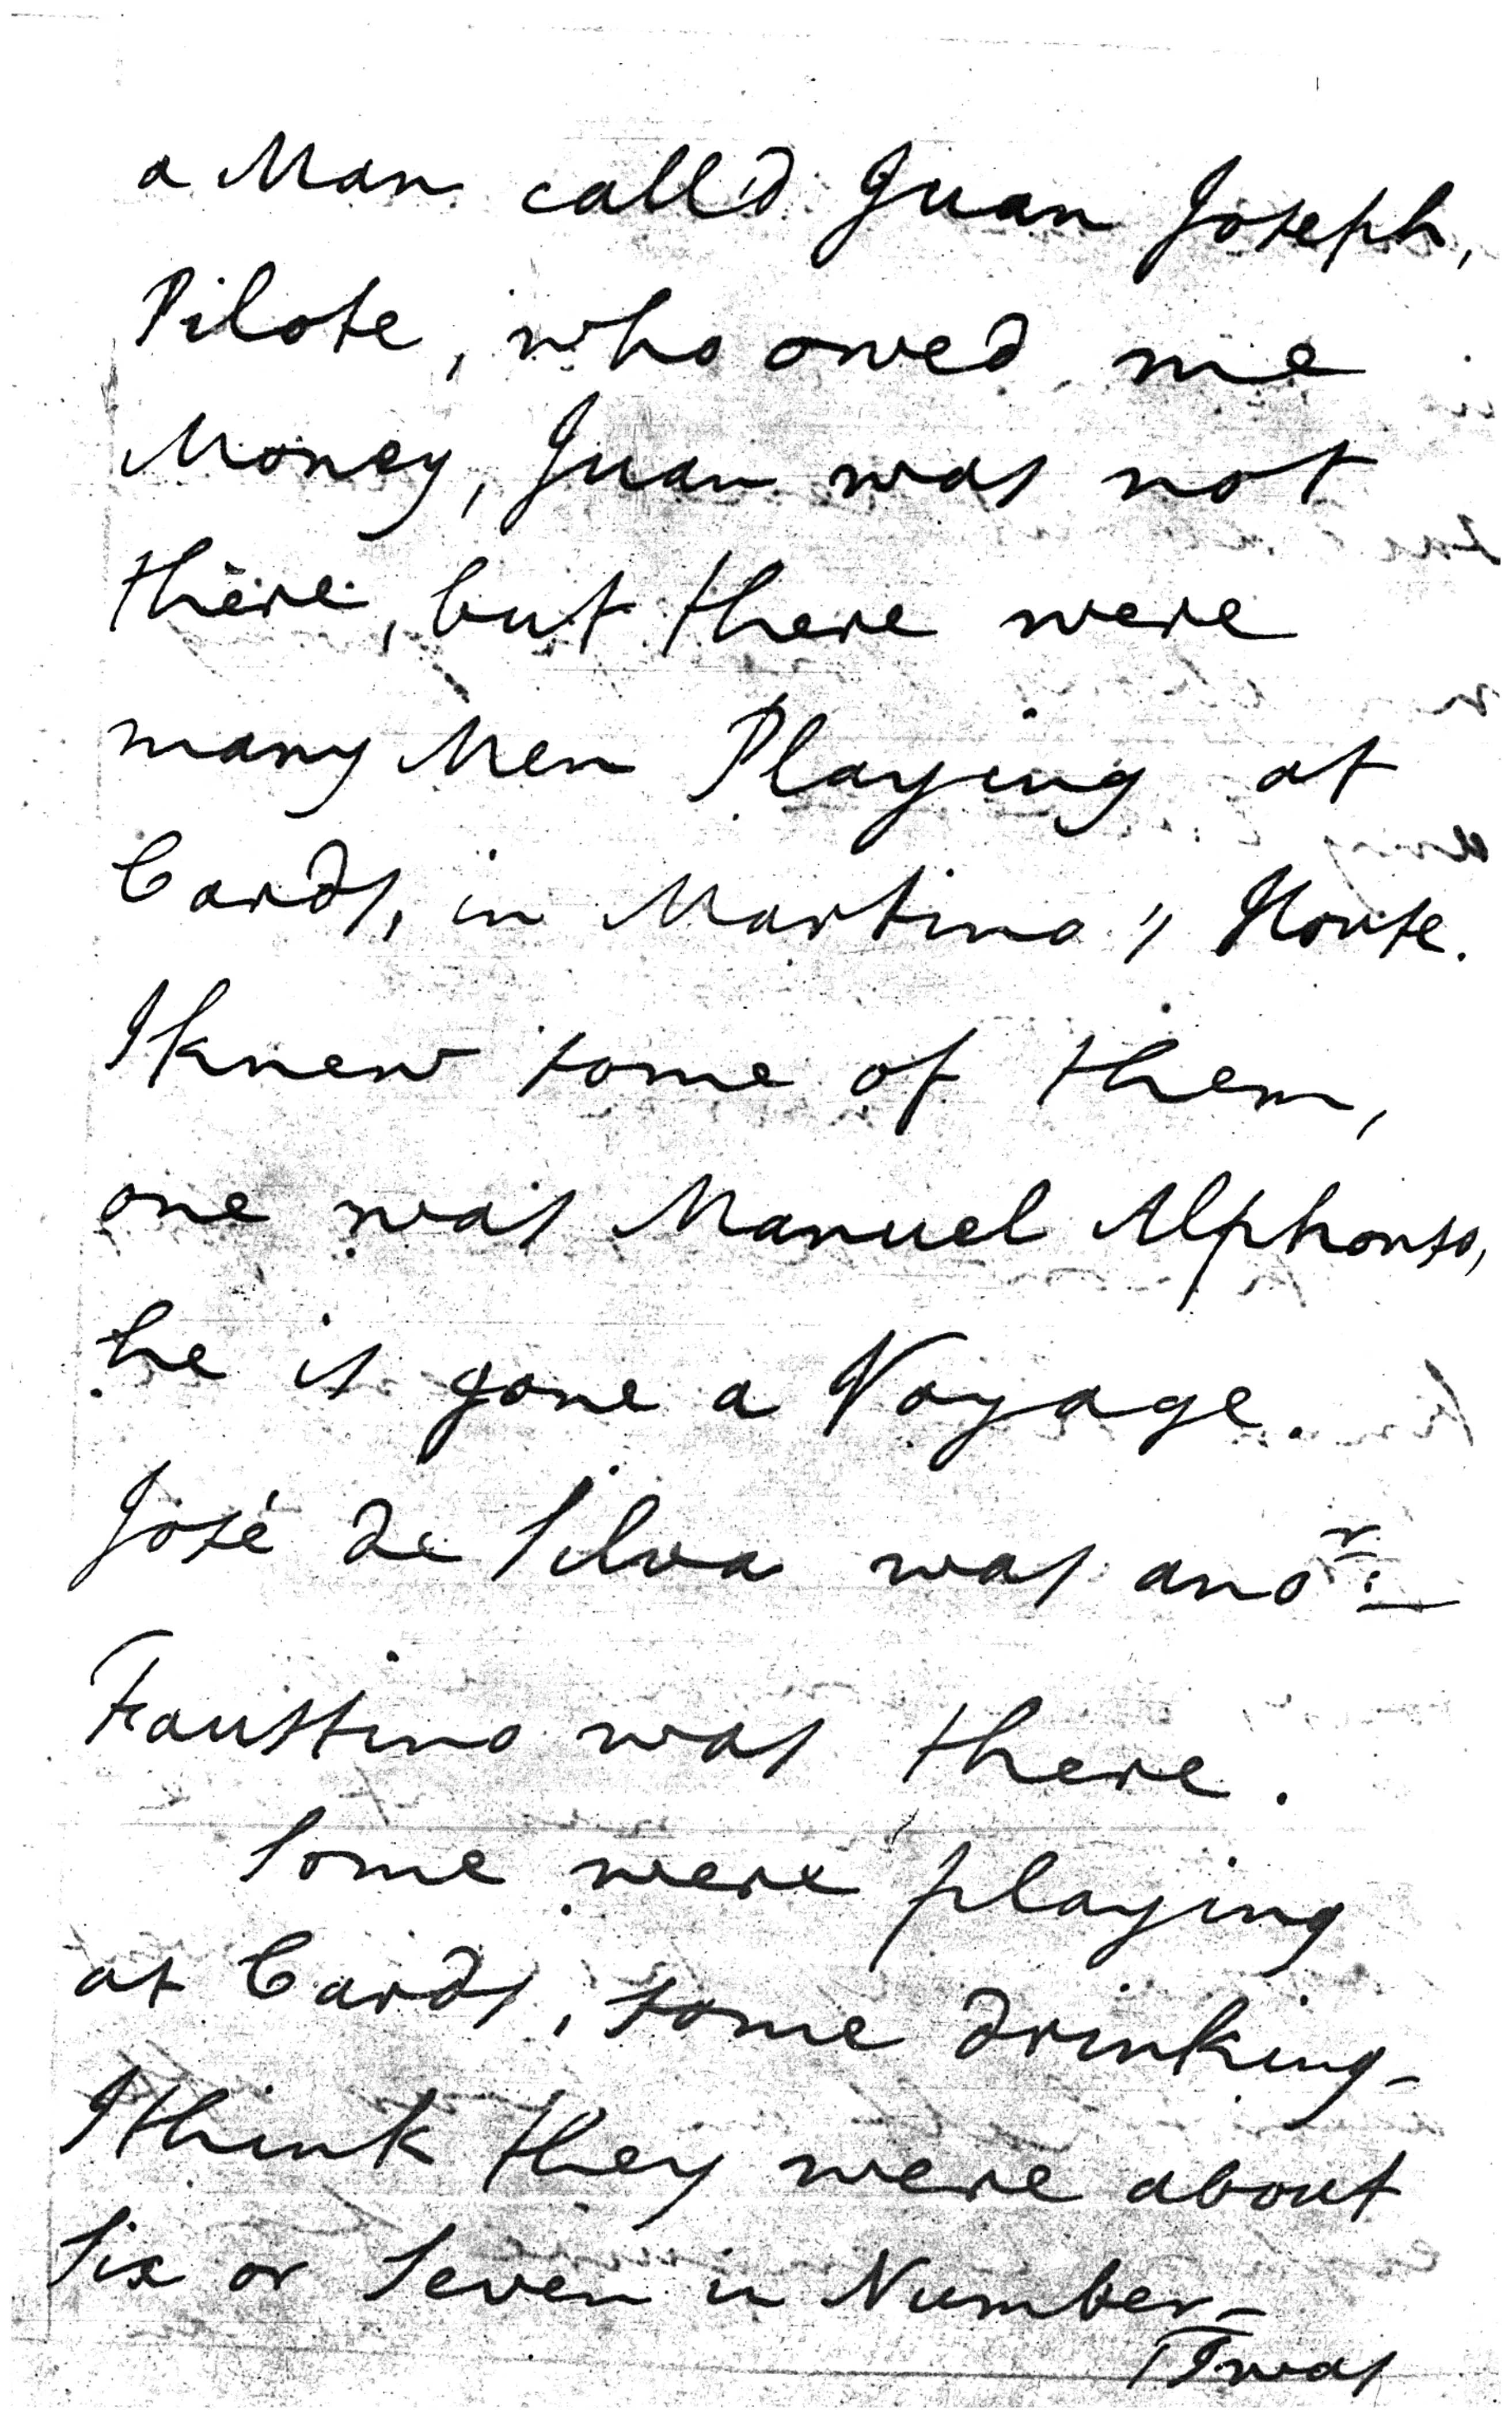 a Man call'd Juan Joseph,
Pilote, who owed me
Money, Juan was not
there, but there were
many Men Playing at
Cards, in Martino's House.
I knew some of them,
one was Manuel Alphonso,
he is gone a Voyage.
José de Silva was ano^r:
Faustino was there.
Some were playing
at Cards, some drinking-
I think they were about
Six or Seven in Number-
I was